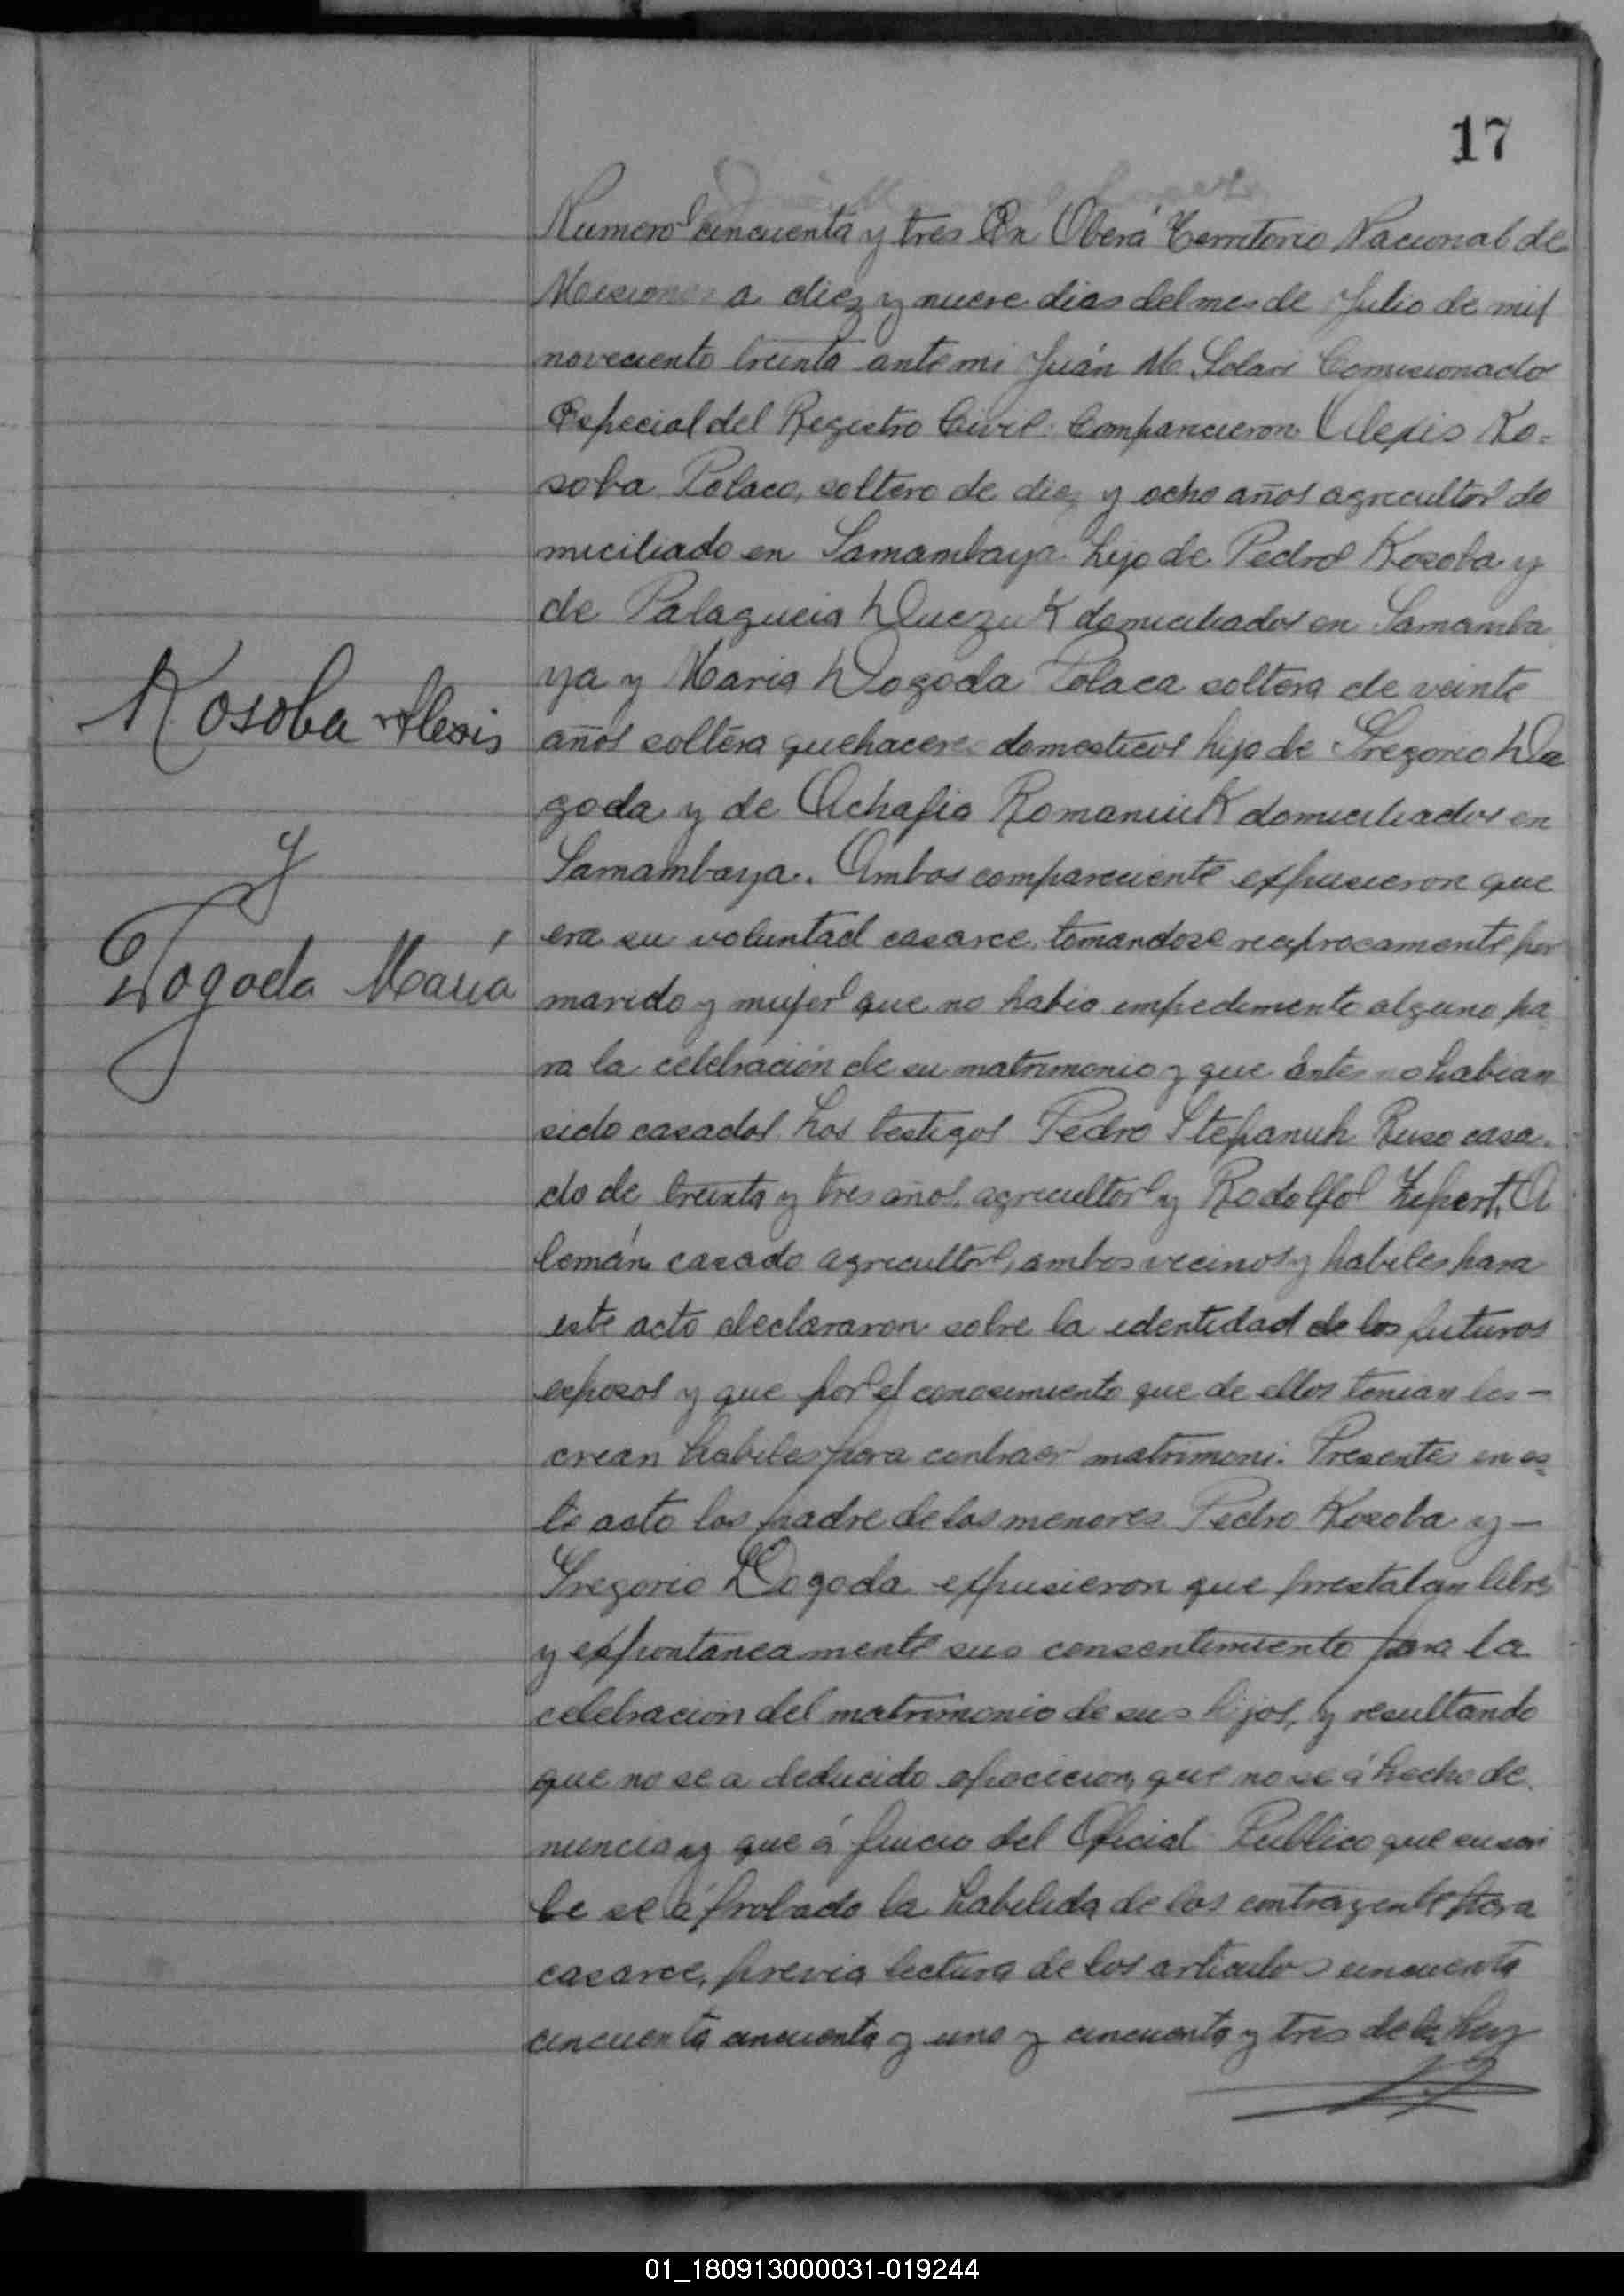 17
Numero cincuenta y tres En Oberá Territorio Nacional de
Misiones a diez y nueve dias del mes de Julio de mil
noveciento treinta ante mi Juán M. Solari Comisionado
Especial del Registro Civil. Comparecieron Alexis Ko=
soba Polaco, soltero de diez y ocho años agricultor do
miciliado en Samambaya hijo de Pedro Kosoba y
de Palagueia domiciliados en Samamba
Kosoba Alexis
ya y Maria Dogoda Polaca soltera de veinte
años soltera quehaceres domesticos hijo de Gregorio Do
goda y de Achafia Romaniuk domiciliados en
y
Samambaya. Ambos compareciente expusieron que
Dogoda María
era su voluntad casarce, tomandose reciprocamente por
marido y mujer que no habia impedimento alguno pa
ra la celebración de su matrimonio y que antes no habian
sido casados. Los testigos Pedro Stepanuk Ruso casa
do de treinta y tres años, agricultor y Rodolfo A
lemán casado agricultor, ambos vecinos y habiles para
este acto declararon sobre la identidad de los futuros
esposos y que por el conosimiento que de ellos tenian los -
crean habiles para contraer matrimoni. Presentes en es
te acto los padre de los menores Pedro Kosoba y -
Gregorio Dogoda expusieron que prestaban libre
y espontanea mente sus consentimiento para la
celebracion del matrimonio de sus hijos, y resultando
que no se a deducido oposicion, que no se á hecho de
nuncia y que á juicio del Oficial Publico que suscri
be se á probado la habilida de los contrayente para
casarce, previa lectura de los articulos cincuenta
cincuenta cincuenta y uno y cincuenta y tres de la Ley
01_180913000031-019244